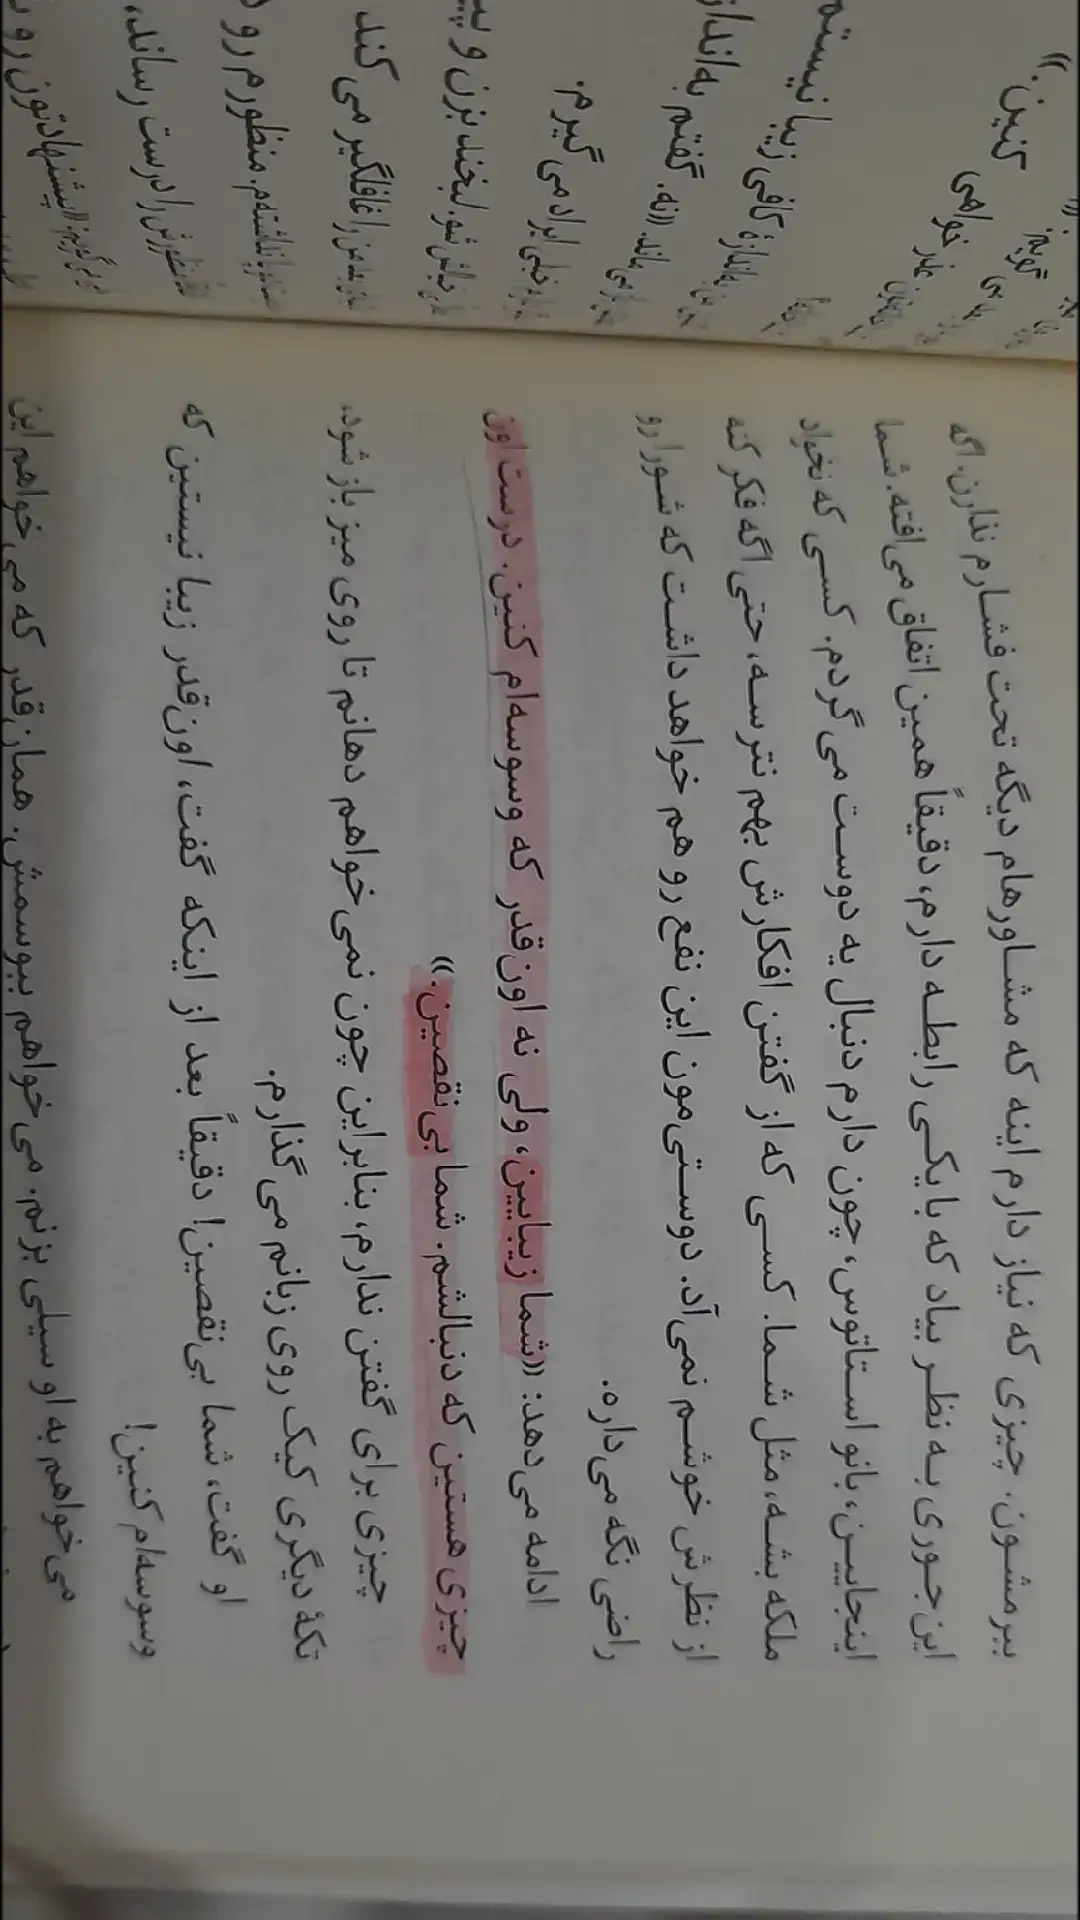 ببرمشون. چیزی که نیاز دارم اینه که مشاورهام دیگه تحت فشارم نذارن. اگه
این‌جوری به نظر بیاد که با یکی رابطه دارم، دقیقاً همین اتفاق می‌افته. شما
اینجایین، بانو استاتوس، چون دارم دنبال یه دوست می‌گردم. کسی که نخواد
ملکه بشه، مثل شما. کسی که از گفتن افکارش بهم نترسه، حتی اگه فکر کنه
از نظرش خوشم نمی‌آد. دوستی‌مون این نفع رو هم خواهد داشت که شورا رو
راضی نگه می‌داره.
ادامه می‌دهد: «شما زیبایین، ولی نه اون‌قدر که وسوسه‌ام کنین. درست اون
چیزی هستین که دنبالشم. شما بی‌نقصین.»
چیزی برای گفتن ندارم، بنابراین چون نمی‌خواهم دهانم تا روی میز باز شود،
تکهٔ دیگری کیک روی زبانم می‌گذارم.
او گفت، شما بی‌نقصین! دقیقاً بعد از اینکه گفت، اون‌قدر زیبا نیستین که
وسوسه‌ام کنین!
می‌خواهم به او سیلی بزنم. می‌خواهم ببوسمش. همان‌قدر که می‌خواهم این
کنین.»
می‌گویم:
خواهی
زیبا نیستم
کافی زیبا
«نه. گفتم به انداز
ایراد می‌گیرم.
لبخند بزن و
را غافلگیر می‌کند
منظورم رو
را درست رساند،
پیشنهادتون رو